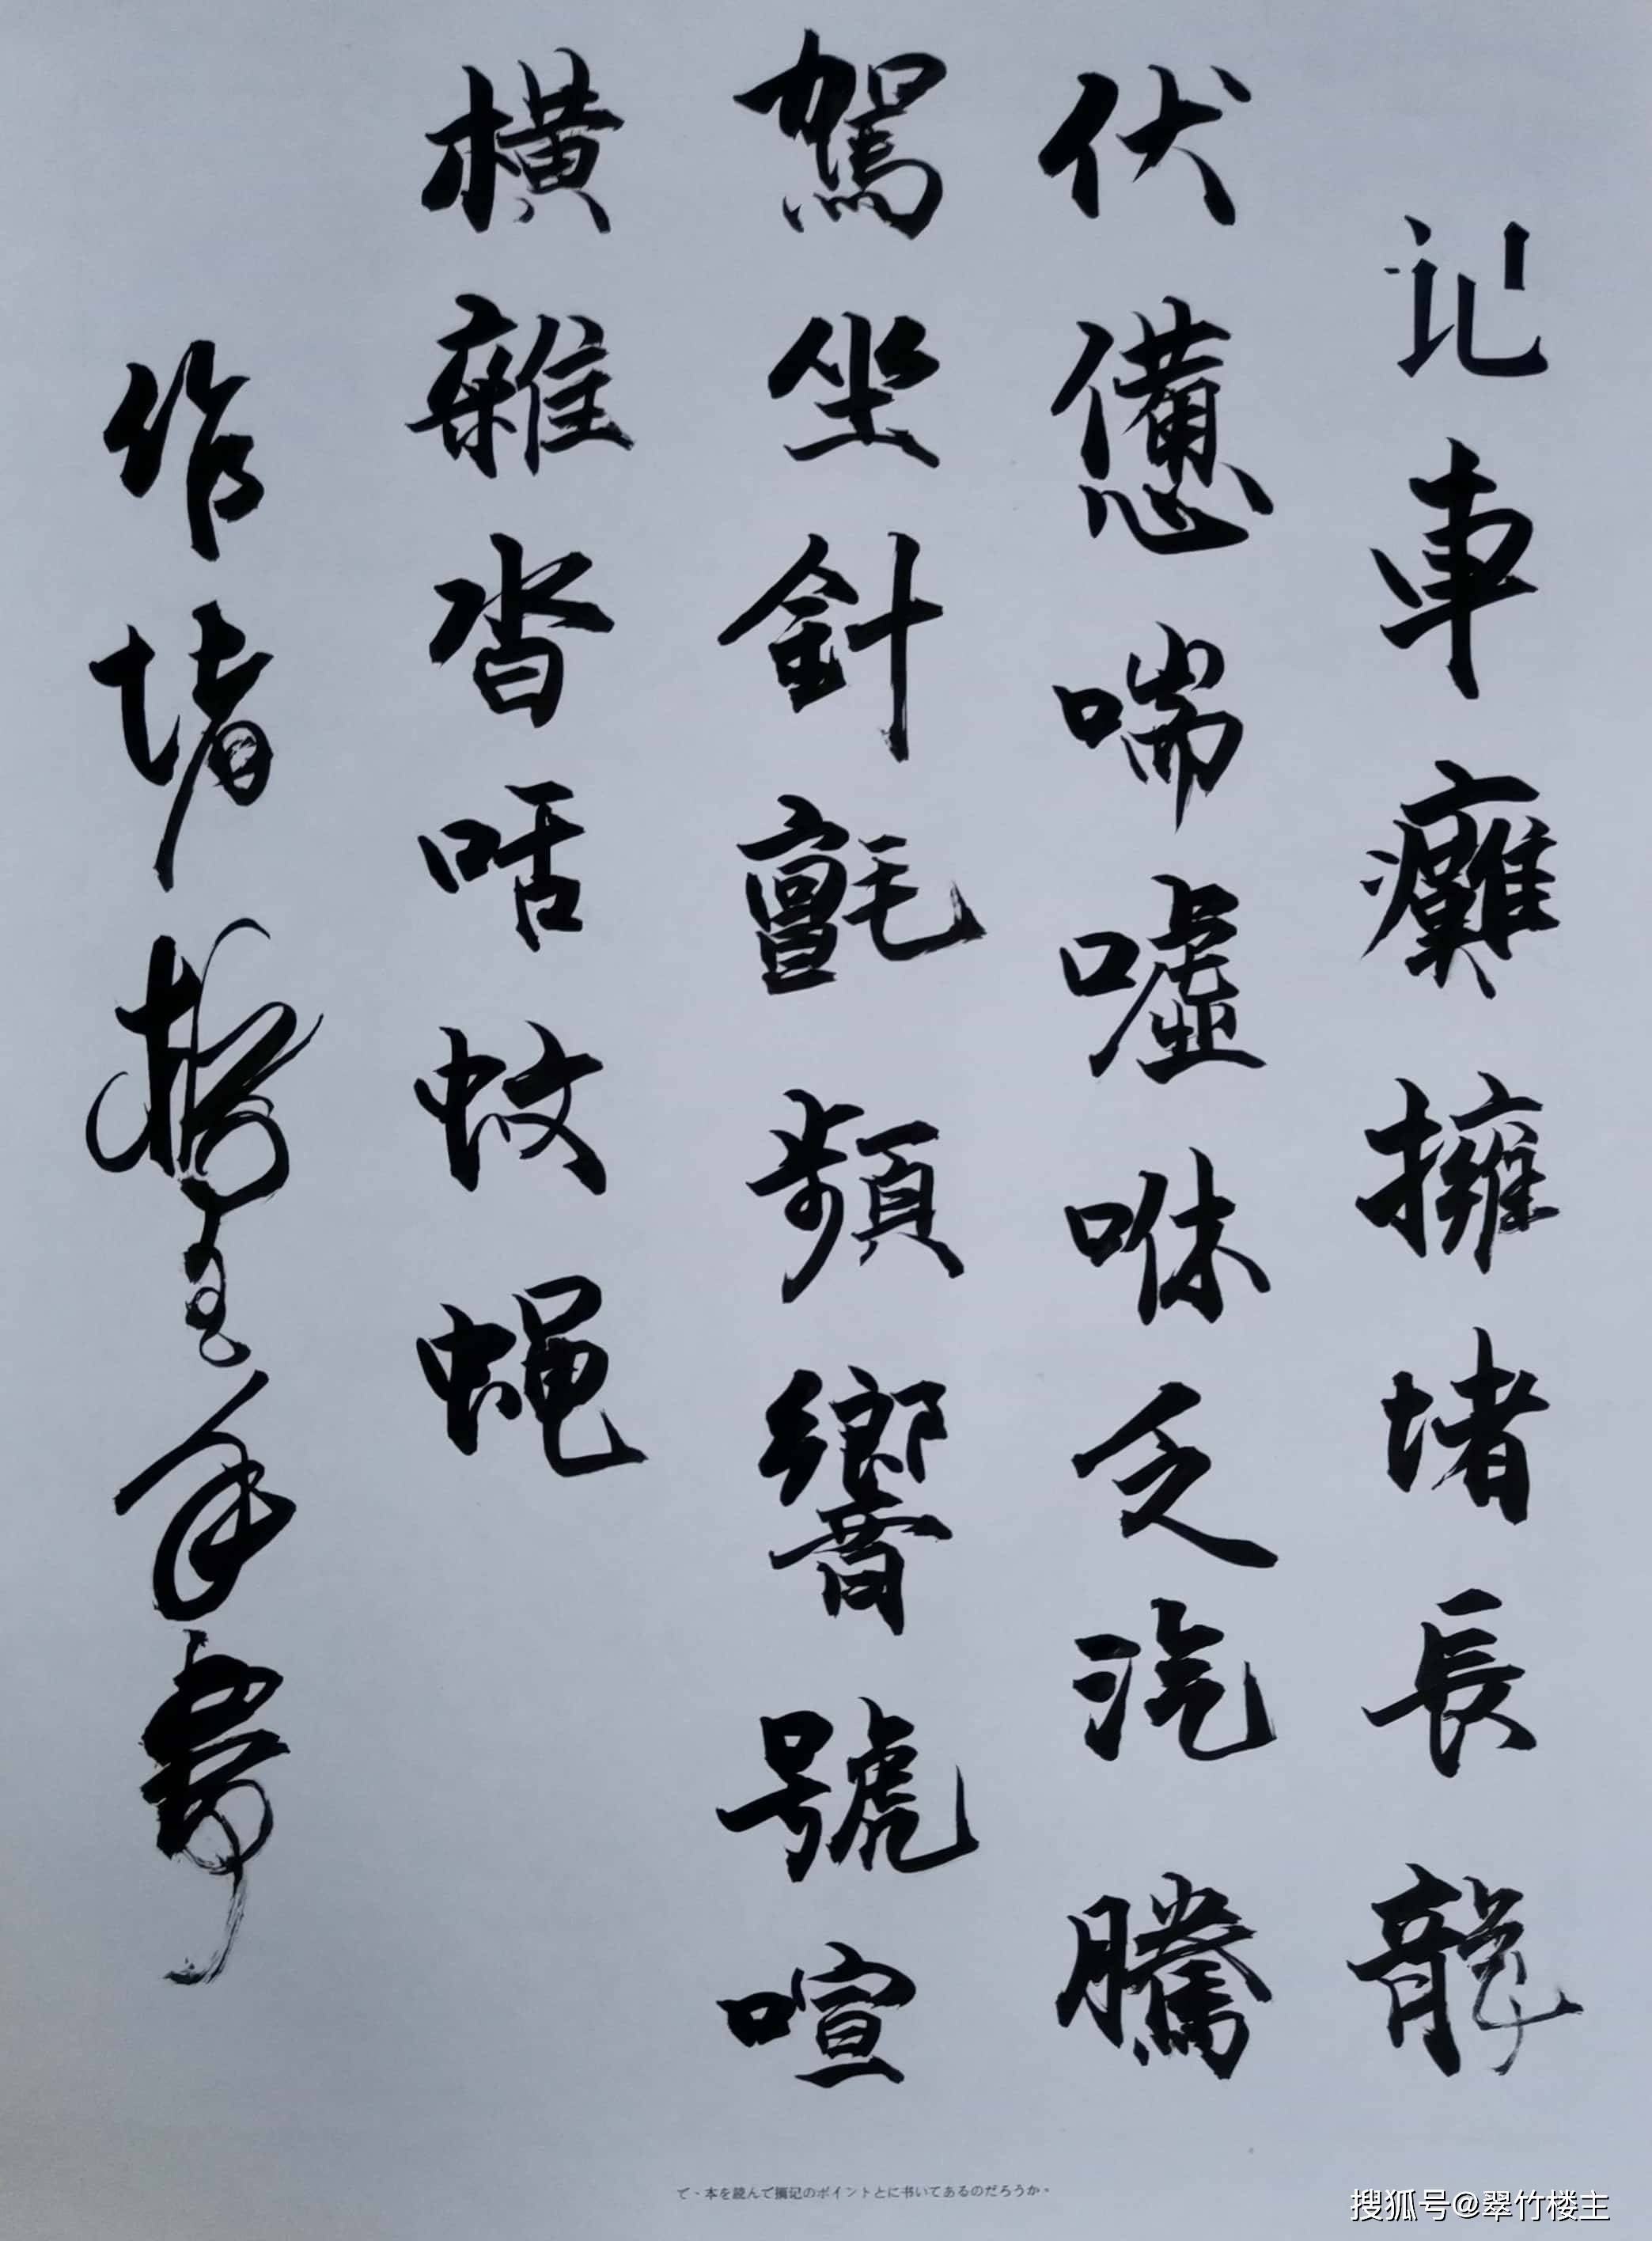 记車癱擁堵長龍
伏憊喘嘘咻乏汽騰
駕坐針氈頻響號喧
橫雜沓咶蚊蝇
作堵年書
て、本を読んで摘记のポイントとに书いてあるのだろうか。
搜狐号@翠竹楼主